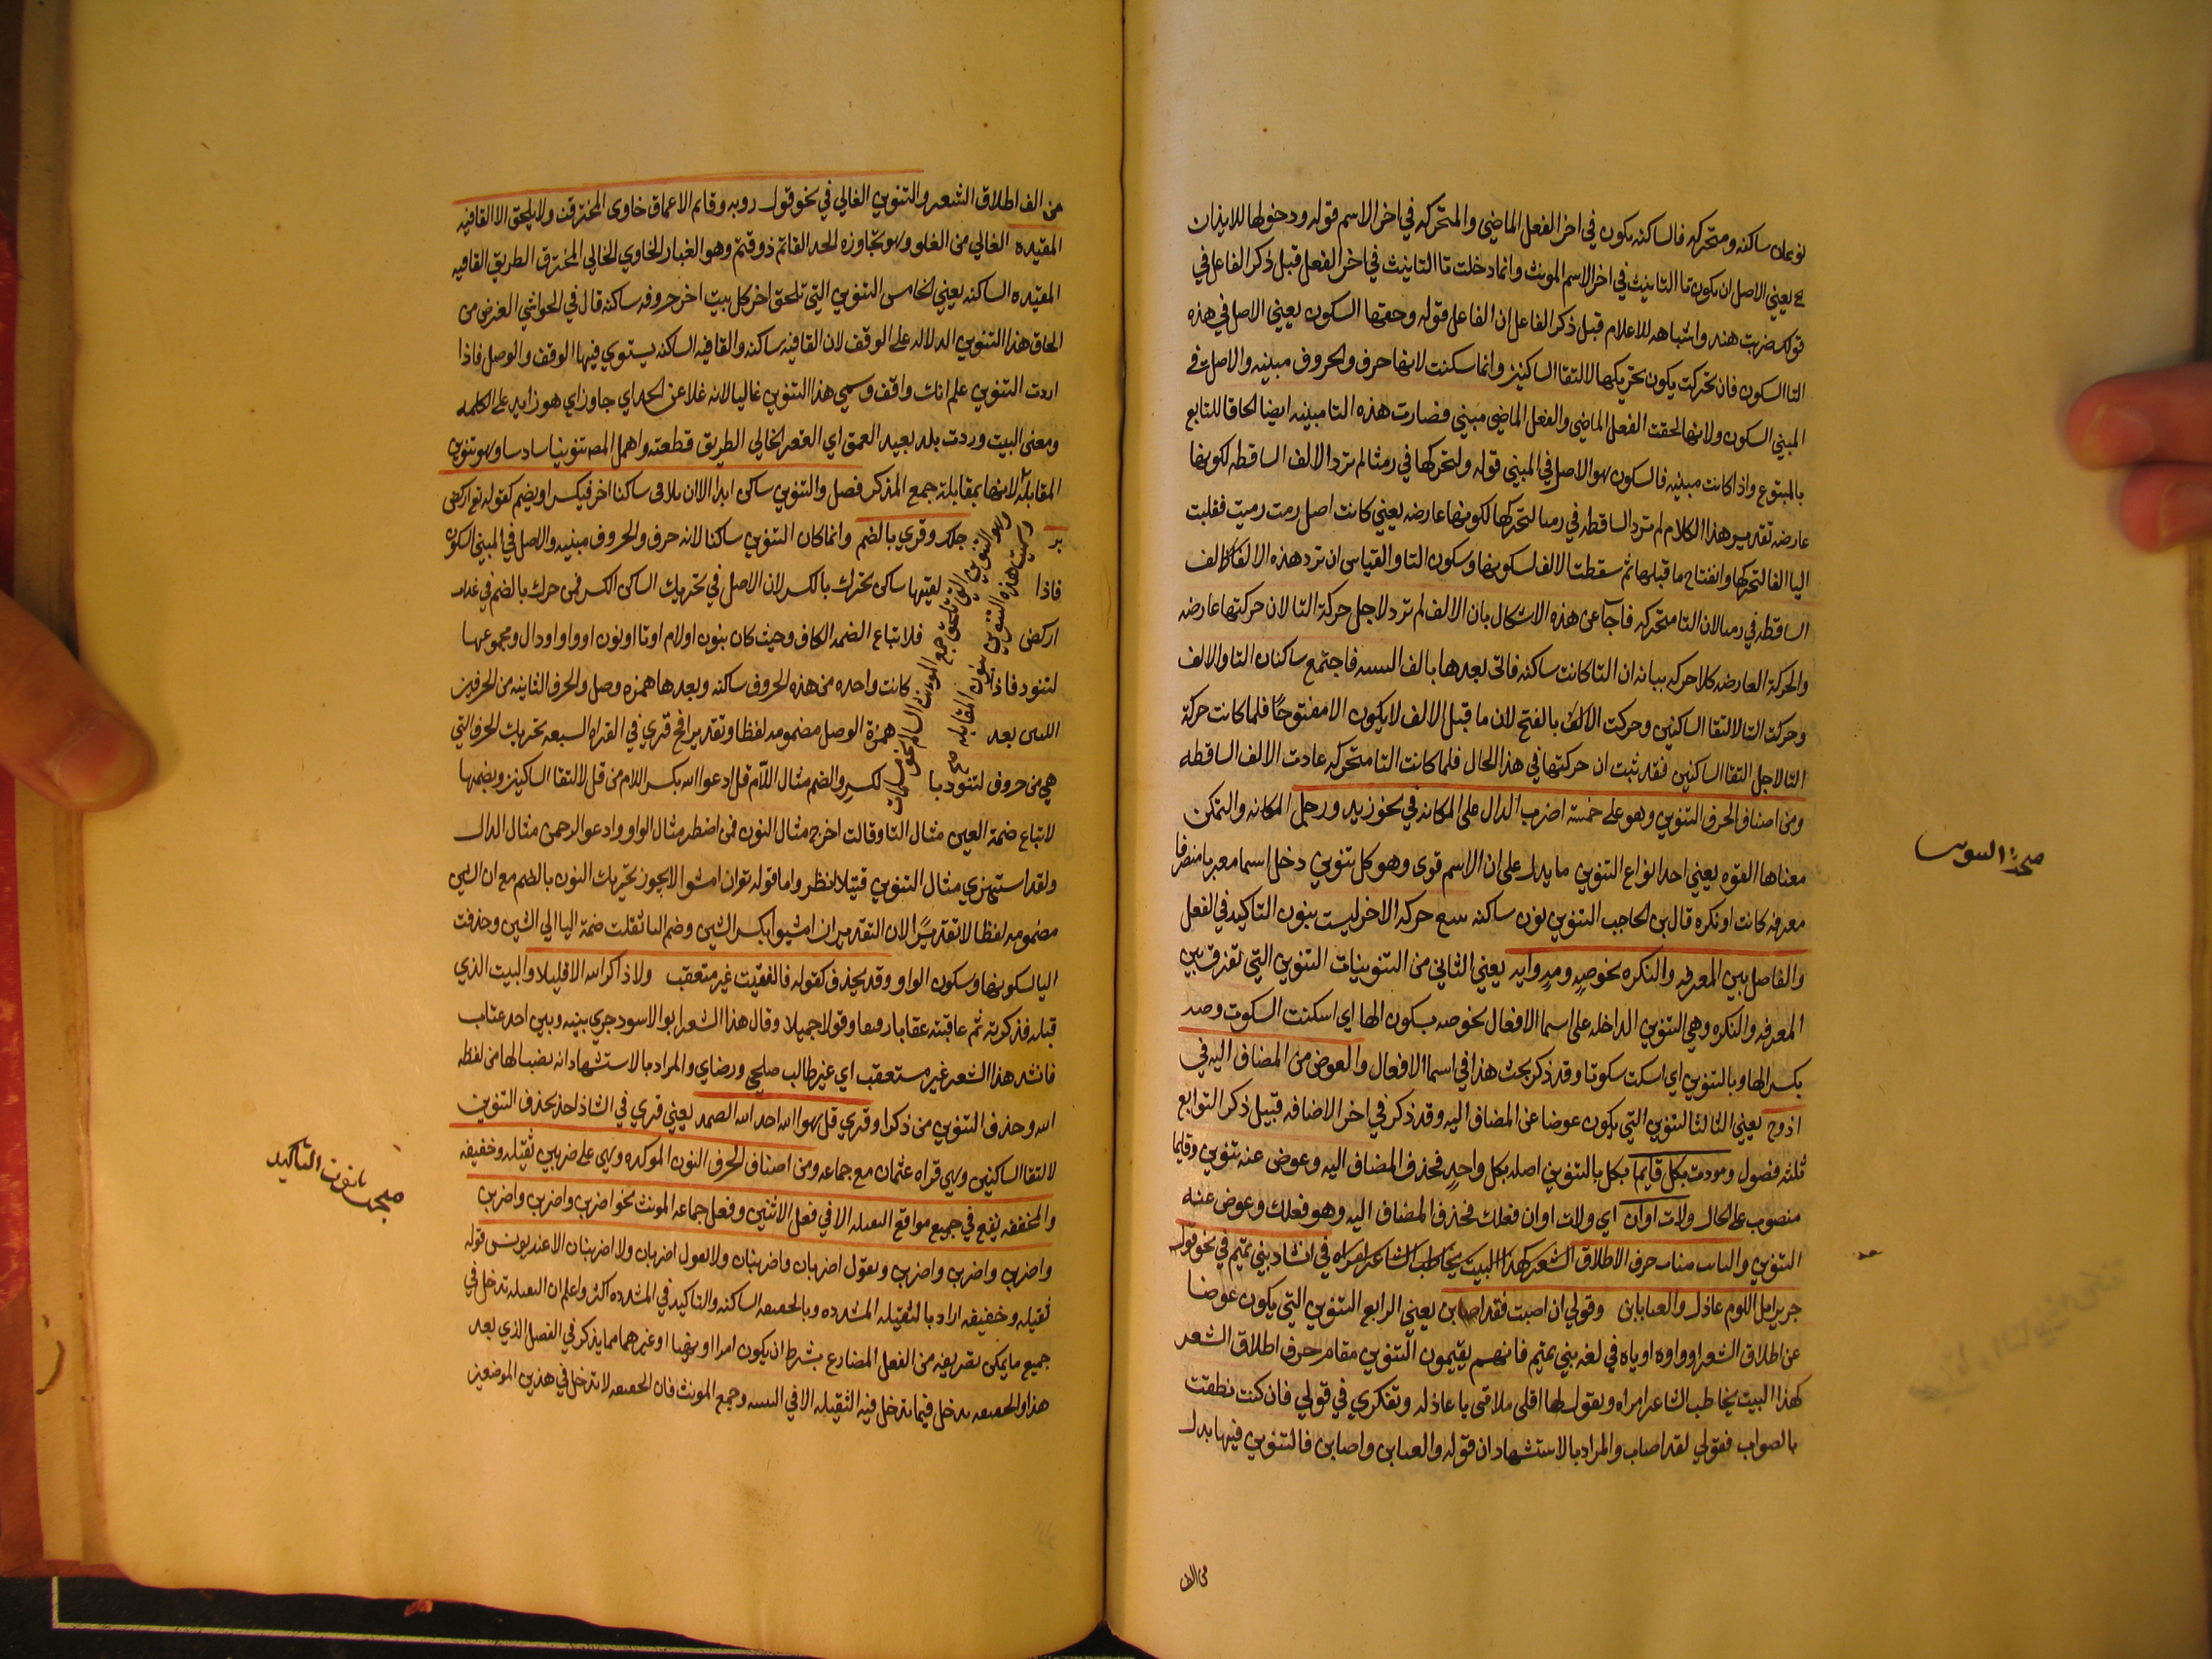 نوعان ساكنه ومتحركه فالساكنه يكون في اخر الفعل الماضي والمتحركه في اخر الاسم قوله ودخولها للايذان
يعني الاصل ان يكون تا التانيث في اخر الاسم المونث وانما دخلت تا التانيث في اخر الفعل قبل ذكر الفاعل في
قولك ضربت هند واشباهه للاعلام قبل ذكر الفاعل ان الفاعل قوله وحقها السكون يعني الاصل في هذه
التا السكون فان تحركت يكون تحريكها لالتقا الساكنين وانما سكنت لانها حرف والحروف مبنيه والاصل في
المبني السكون ولانها لحقت الفعل الماضي والفعل الماضي مبني فصارت هذه التا مبنيه ايضا الحاقا للتابع
بالمتبوع واذا كانت مبنيه فالسكون هو الاصل في المبني قوله ولتحركها في رمتا لم ترد الالف الساقطه لكونها
عارضه تقدير هذا الكلام لم ترد الساقطه في رمتا لتحركها لكونها عارضه يعني كانت اصل رمت رميت فقلبت
اليا الفا لتحركها وانفتاح ما قبلها ثم سقطت الالف لسكونها وسكون التا والقياس ان ترد هذه الالف كالف
الساقطه في رمتا لان التا متحركه فاجاب عن هذه الاشكال بان الالف لم ترد لاجل حركة التا لان حركتها عارضه
والحركة العارضه كلا حركه بيانه ان التا كانت ساكنه فاتي بعدها بالف فاجتمع ساكنان التا والالف
وحركت التا لالتقا الساكنين وحركت بالفتح لان ما قبل الالف لا يكون الا مفتوحا فلما كانت حركة
التا لاجل التقا الساكنين فقد ثبت ان حركتها في هذا الحال فلما كانت التا متحركه عادت الالف الساقطه
ومن اصناف الحرف التنوين وهو على خمسة اضرب الدال على المكانه في نحو زيد ورجل المكانه والتمكن
معناها القوه يعني احد انواع التنوين ما يدل على ان الاسم قوي وهو كل تنوين دخل اسما معربا منصرفا
معرفه كانت او نكره قال بن الحاجب التنوين نون ساكنه حركه الاخر ليست بنون التاكيد في الفعل
والفاصل بين المعرفه والنكره نحو صه ومه وايه يعني الثاني من التنوينات التنوين التي تفرق بين
المعرفه والنكره وهي التنوين الداخله على اسما الافعال نحو صه بسكون الها اي اسكت السكوت وصه
بكسر الها وبالتنوين اي اسكت سكوتا وقد ذكر بحث هذا في اسما الافعال والعوض من المضاف اليه في
اذ وح يعني الثالث التنوين التي يكون عوضا عن المضاف اليه وقد ذكر في اخر الاضافه قبيل ذكر التوابع
ثلثه فصول ومررت بكل قايما بكل بالتنوين اصله بكل واحد فحذف المضاف اليه وعوض عنه تنوين وقايما
منصوب على الحال ولات اوان اي ولات اوان فعلك فحذف المضاف اليه وهو فعلك وعوض عنه
التنوين والنايب مناب حرف الاطلاق في انشاد بني تميم في نحو قول
جرير اقل اللوم عاذل والعتابن وقولي ان اصبت فقد اصابن يعني الرابع التنوين التي يكون عوضا
عن اطلاق الشعر او واوه او ياه في لغه بني تميم فانهم يقيمون التنوين مقام حرف اطلاق الشعر
كهذا البيت يخاطب الشاعر امراه ويقول لها اقلي ملامتي يا عاذله وتفكري في قولي فان كنت نطقت
بالصواب فقولي لقد اصاب والمراد بالاستشهاد ان قوله والعتابن واصابن فالتنوين فيها بدل
من الف
من الف اطلاق الشعر والتنوين الغالي في نحو قول روبه وقاتم الاعماق خاوي المخترقن ولا يلحق الا القافيه
المقيده الغالي من الغلو وهو تجاوزه الحد القاتم ذو قتم وهو الغبار الخاوي الخالي المخترق الطريق القافيه
المقيده الساكنه يعني الخامس التنوين التي تلحق اخر كل بيت اخر حروفه ساكنه قال في الحواشي الغرض من
الحاق هذا التنوين الدلاله على الوقف لان القافيه ساكنه والقافيه الساكنه يستوي فيها الوقف والوصل فاذا
اردت التنوين علم انك واقف وسمي هذا التنوين غاليا لانه غلا عن الحد اي جاوز اي هو زايد على الكلمه
ومعنى البيت وردت بلد بعيد العمق اي القعر الخالي الطريق قطعته واهمل المص تنوينا سادسا وهو تنوين
المقابله لانها بمقابلة جمع المذكر فصل والتنوين ساكن ابدا الا ان يلاقي ساكنا اخر فيكسر او يضم كقوله تع اركض
برجلك وقري بالضم وانما كان التنوين ساكنا لانه حرف والحروف مبنيه والاصل في المبني السكون
فاذا لقيتها ساكن تحرك بالكسر لان الاصل في تحريك الساكن الكسر فمن حرك بالضم في عذاب
اركض فلاتباع الضمه الكاف وحيث كان بنون او لام او تا او نون او واو او دال ومجموعها
لتنود فاذا كانت واحده من هذه الحروف ساكنه وبعدها همزه وصل والحرف الثانيه من الحرفين
اللتين بعد همزة الوصل مضمومه لفظا وتقديرا فح قري في القراه السبعه تحريك الحرف التي
هي من حروف لتنود بالكسر والضم مثال اللام قل ادعوا الله بكسر اللام من قل لالتقا الساكنين وبضمها
لاتباع ضمة العين مثال التا وقالت اخرج مثال النون فمن اضطر مثال الواو او ادعو الرحمن مثال الدال
ولقد استهزي مثال التنوين فتيلا انظر واما قوله تع ان امشوا لا يجوز تحريك النون بالضم مع ان الشين
مضمومه لفظا لا تقديرا لان التقدير ان امشيوا بكسر الشين وضم اليا ثقلت ضمة اليا الي الشين وحذفت
اليا لسكونها وسكون الواو وقد يحذف كقوله فالفيته غير مستعتب ولا ذاكر الله الا قليلا والبيت الذي
قبله فذكرته ثم عاتبته عتابا رفيقا وقولا جميلا وقال هذا الشعر ابو الاسود جري بينه وبين احد عتاب
فانشد هذا الشعر غير مستعتب اي غير طالب صلحي ورضاي والمراد بالاستشهاد انه نصب الها من لفظه
الله وحذف التنوين من ذاكر وقري قل هو الله احد الله الصمد يعني قري في الشاذ احد بحذف التنوين
لالتقا الساكنين وهي قراه عثمان مع جماعه ومن اصناف الحرف النون الموكده وهي على ضربين ثقيله وخفيفه
والمخففه تقع في جميع مواقع الثقيله الا في فعل الاثنين وفعل جماعه المونث نحو اضربن واضربن واضربن
واضربن واضربن واضربن وتقول اضربان واضربنان ولا تقول اضربان ولا اضربنان الا عند يونس قوله
ثقيله وخفيفه اراد بالثقيله المشدده وبالخفيفه الساكنه والتاكيد في المشدده اكثر واعلم ان الثقيله تدخل في
جميع ما يمكن تصريفه من الفعل المضارع بشرط ان يكون امرا او نهيا او غيرهما مما يذكر في الفصل الذي بعد
هذا والخفيفه تدخل فيما تدخل فيه الثقيله الا في التثنيه وجمع المونث فان الخفيفه لا تدخل في هذين الموضعين
وهو التنوين التي تلحق جمع المونث السالم نحو مسلمات
وسميت هذه التنوين بنون المقابله صح
مبحث نون التاكيد